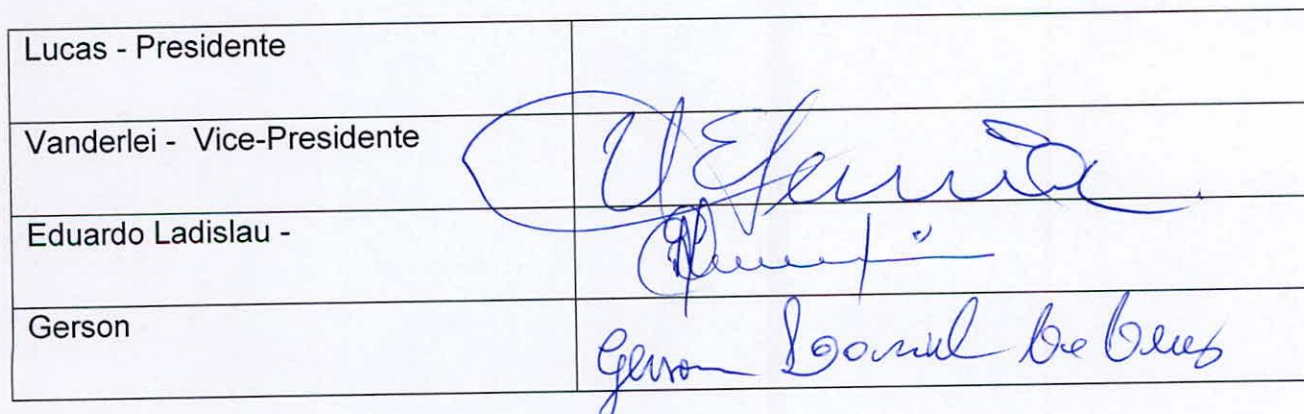 Lucas - Presidente
Vanderlei - Vice-Presidente
Eduardo Ladislau -
Gerson
Gerson Daniel De